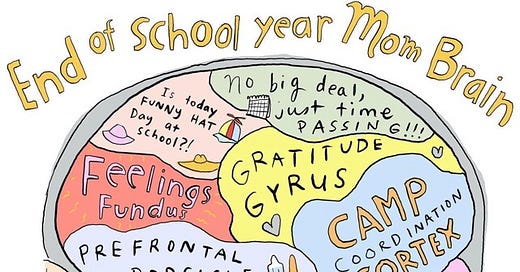 End of School year Mom Brain
Is today
FUNNY HAT
Day at
school?!
No big deal,
just time
PASSING!!!
Feelings
Fundus
GRATITUDE
GYRUS
CAMP
COORDINATION
CORTEX
PREFRONTAL